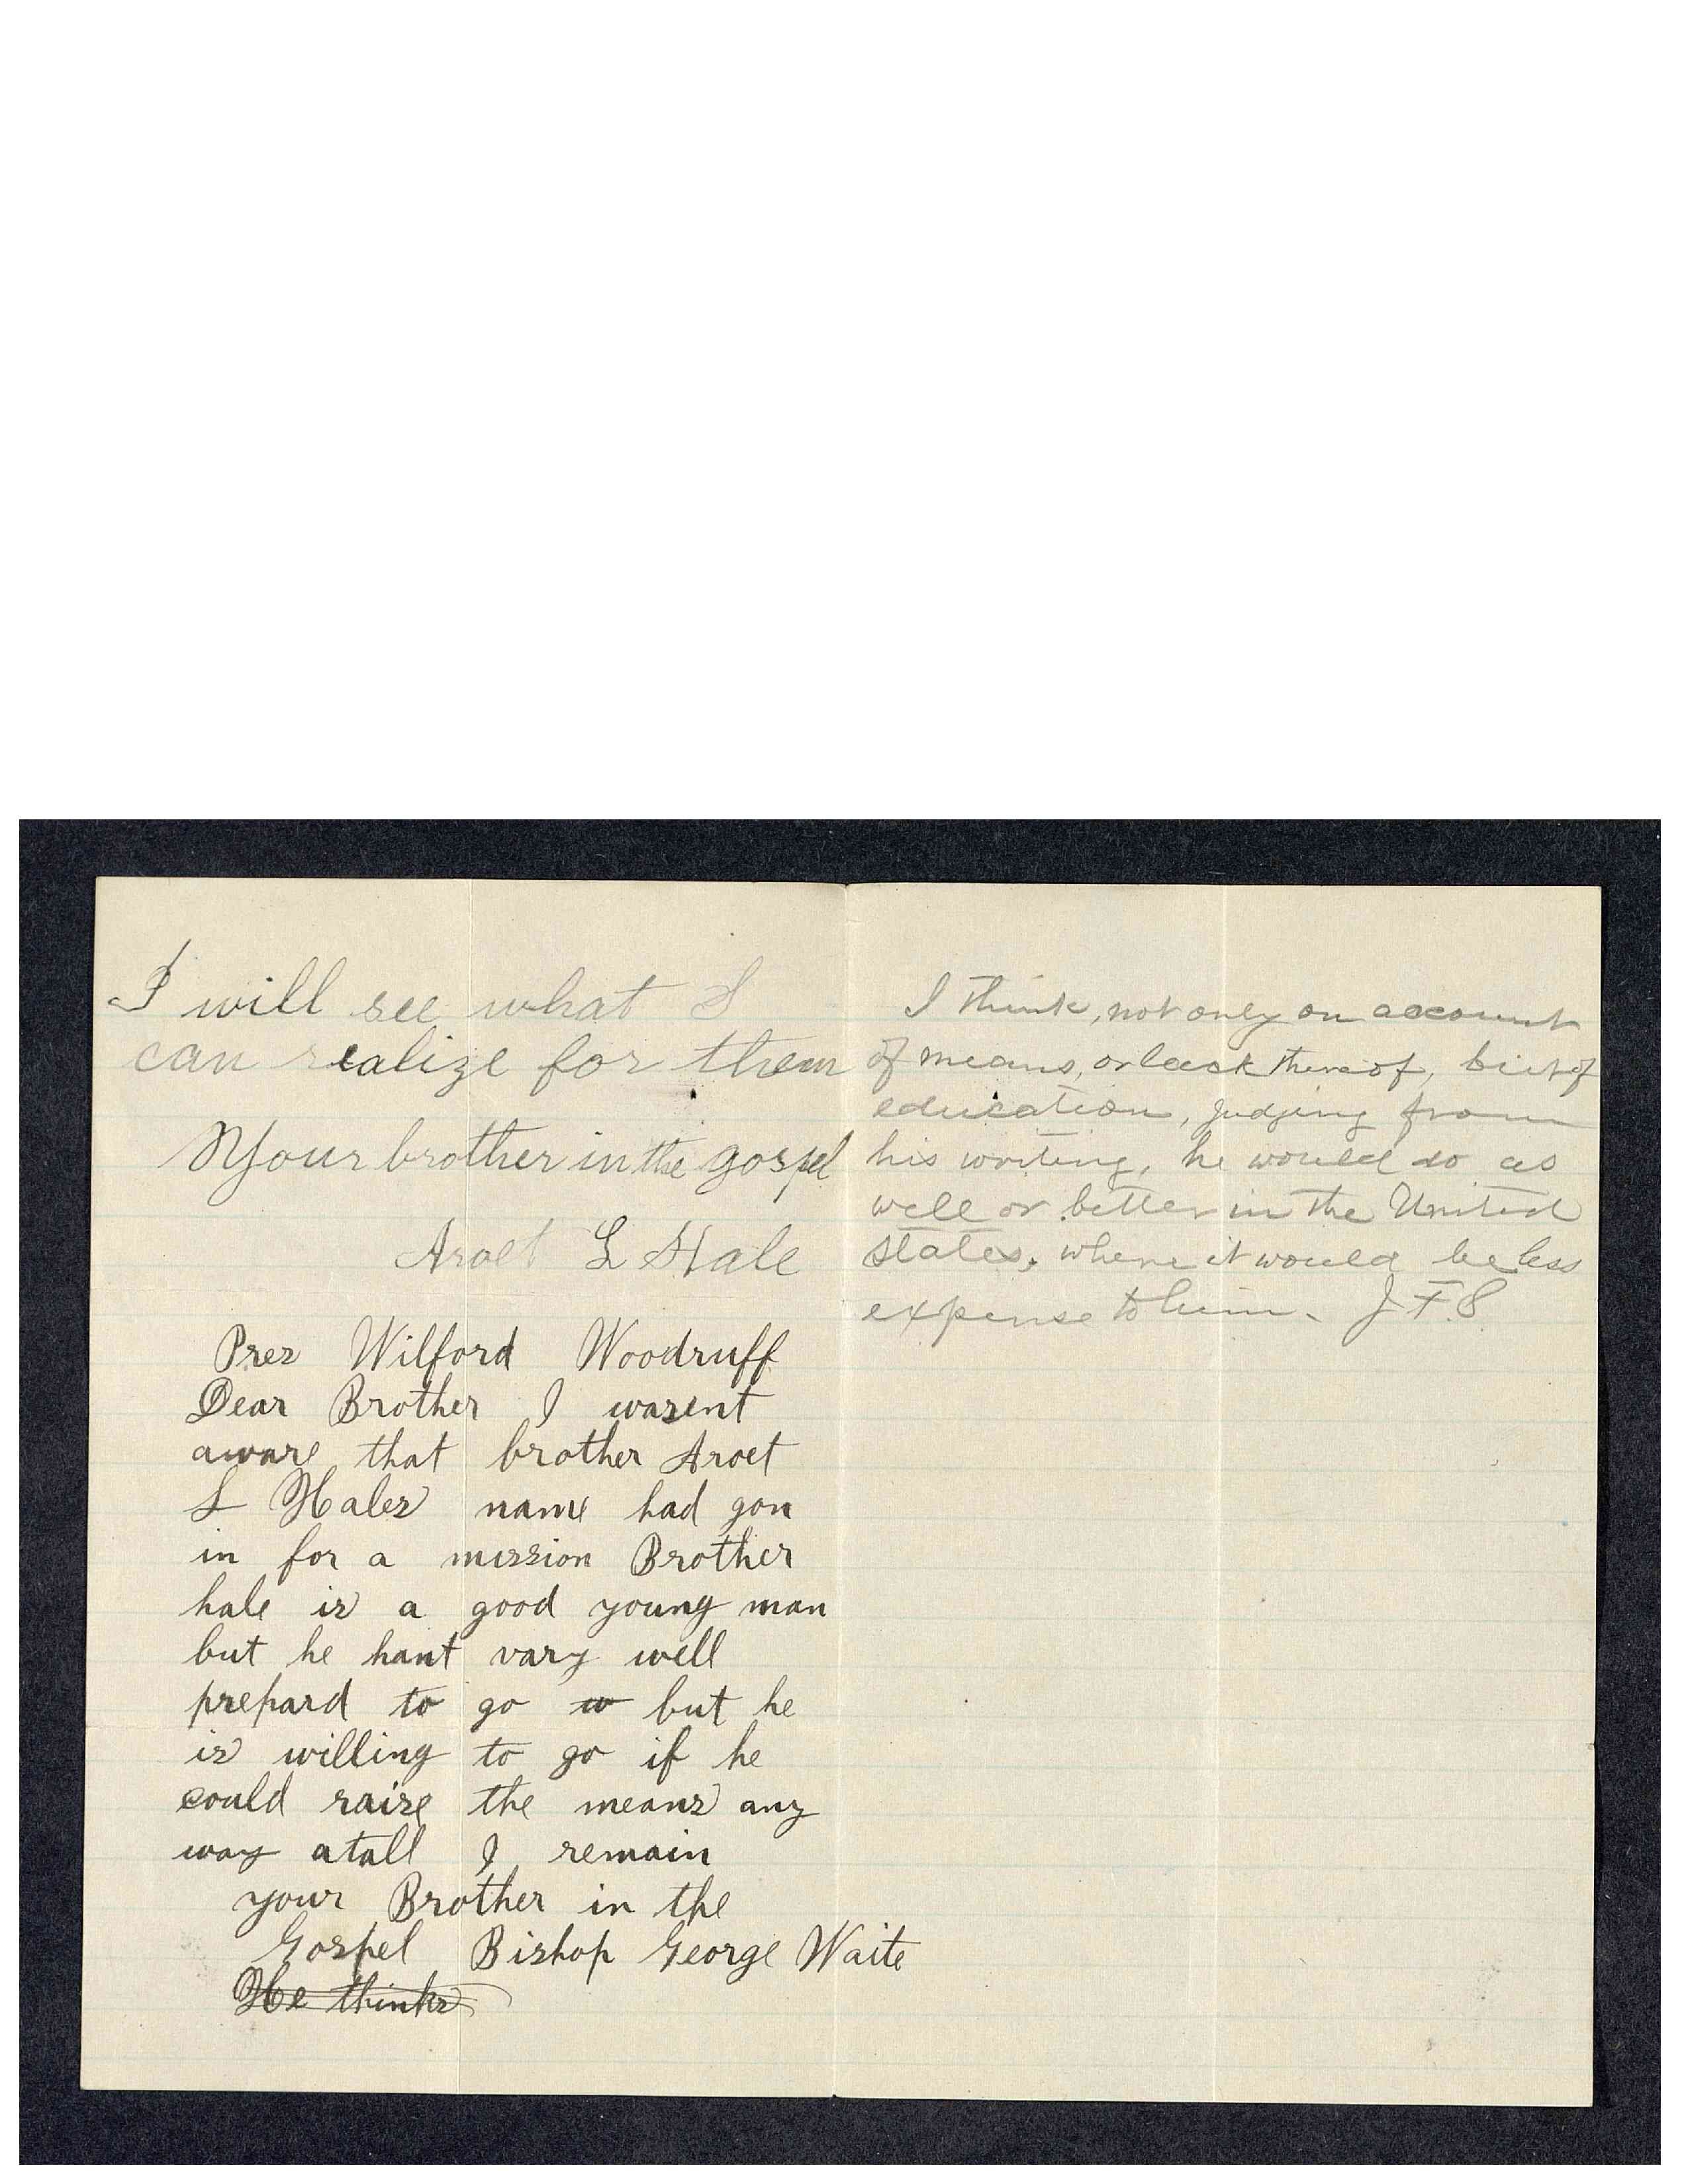 I will see what I
can realize for them
Your brother in the gospel
Aroet L Hale
Pres Wilford Woodruff
Dear Brother I wasent
aware that brother Aroet
L Hales name had gon
in for a mission Brother
hale is a good young man
but he hant vary well
prepard to go w but he
is willing to go if he
could raise the means any
way atall I remain
your Brother in the
Gospel Bishop George Waite
He thinks
I think, not only on account
of means, or lack thereof, but of
education, judging from
his writing, he would do as
well or better in the United
States, where it would be less
expense to him. J F. S.